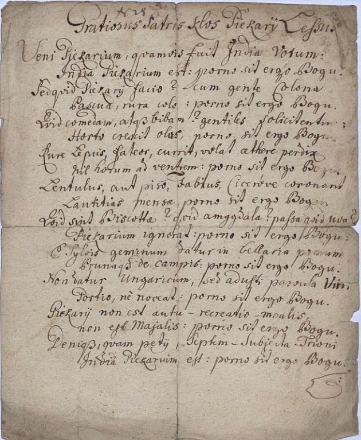 Gratiosus Patris Klos Piekarij Cessus.
Veni Piekarium, quamvis fuit India Votum:
India Piekarium est: porno sit ergo Bogu.
Sed quid Piekarij facio? cum gente Colona
Pascua, rura colo: porno sit ergo Bogu.
Quid comedam, atq bibam? gentiles solicitentur
Horto crescit olus, porno, sit ergo Bogu
Cure Lepus, fateor, currit, volat æthere perdix
ad ventrem: porno sit ergo Bogu
Lentulus, aut piso, Fabius, Cicerove coronant
Lautitias mensæ, porno sit ergo Bogu.
Quid sint Biscotta? quid amygdala? passa quid uva?
Piekarium ignorat: porno sit ergo Bogu
E sylvis geminum datur in bellaria prunum
de campis: porno sit ergo Bogu.
Non datur Ungaricum, sed adusti parvula Vini
Portio, ne noceat: porno sit ergo Bogu.
Piekarij non est autu-recreatio-mnalis,
non est Majalis: porno sit ergo Bogu.
Deniq, quam petij, Septem-Subjecta-Trioni
India Piekarium est: porno sit ergo Bogu.